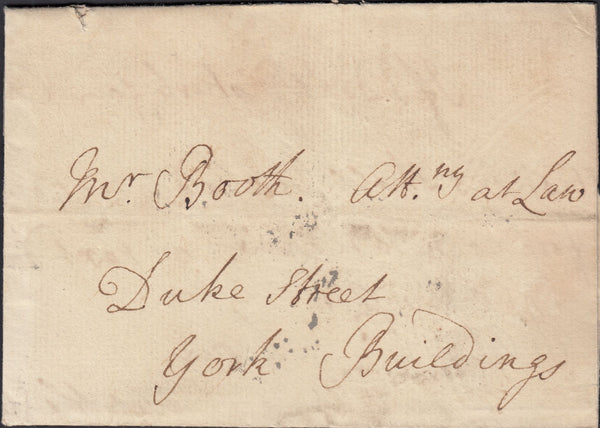 Mr. Booth. Att.ny at Law
Duke Street
York Buildings